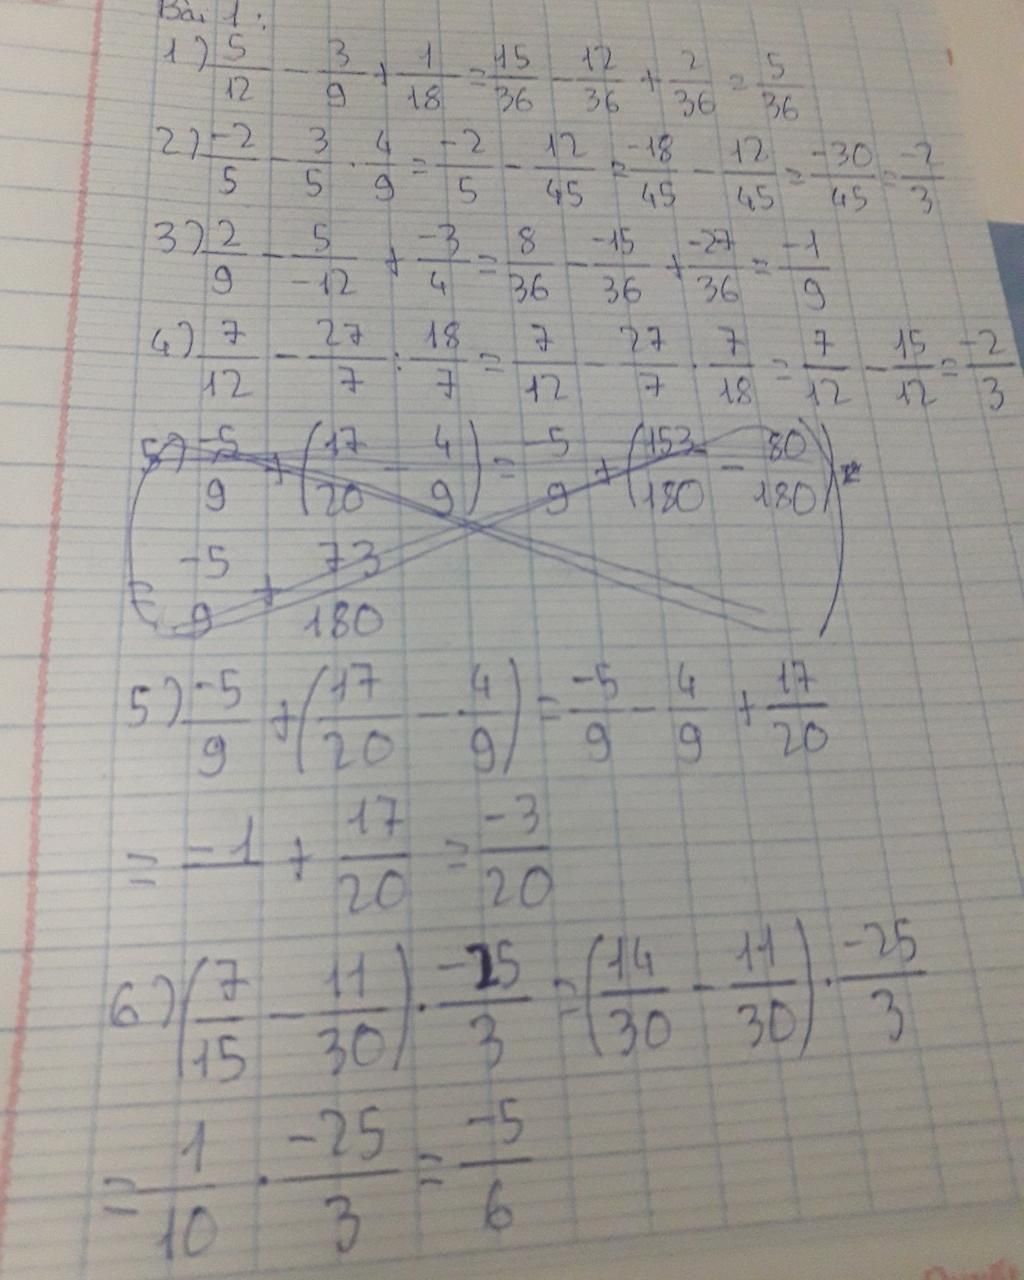 Bài 1:
1) 5/12 - 3/9 + 1/18 = 15/36 - 12/36 + 2/36 = 5/36
2) -2/5 - 3/5 . 4/9 = -2/5 - 12/45 = -18/45 - 12/45 = -30/45 = -2/3
3) 2/9 - 5/-12 + -3/4 = 8/36 - -15/36 + -27/36 = -1/9
4) 7/12 - 27/7 : 18/7 = 7/12 - 27/7 . 7/18 = 7/12 - 15/12 = -2/3
5) -5/9 + (17/20 - 4/9) = -5/9 + (153/180 - 80/180)
= -5/9 + 73/180
5) -5/9 + (17/20 - 4/9) = -5/9 - 4/9 + 17/20
= -1 + 17/20 = -3/20
6) (7/15 - 11/30) . -25/3 = (14/30 - 11/30) . -25/3
= 1/10 . -25/3 = -5/6